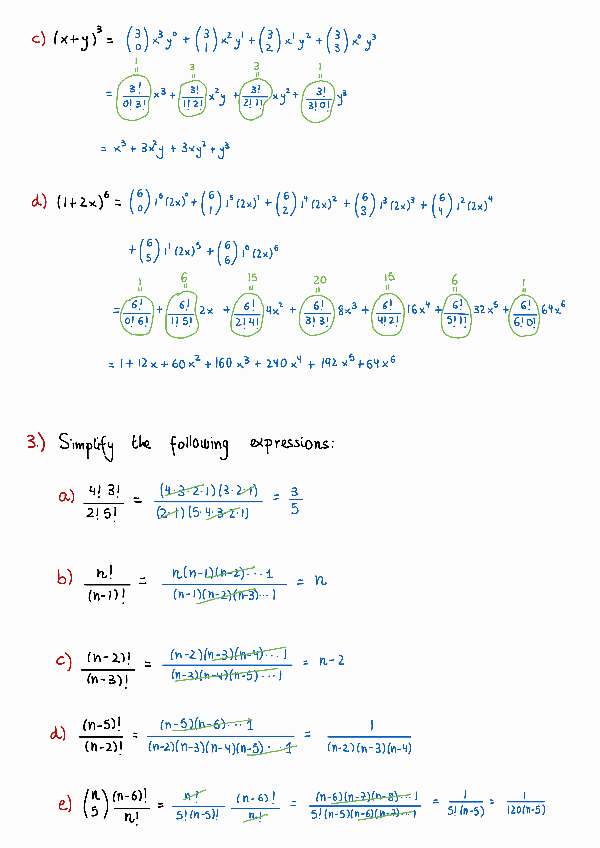 c) (x+y)³ = (3 0) x³y⁰ + (3 1) x²y¹ + (3 2) x¹y² + (3 3) x⁰y³
1 3 3 1
= 3!/0!3! x³ + 3!/1!2! x²y + 3!/2!1! xy² + 3!/3!0! y³
= x³ + 3x²y + 3xy² + y³
d) (1+2x)⁶ = (6 0) 1⁶(2x)⁰ + (6 1) 1⁵(2x)¹ + (6 2) 1⁴(2x)² + (6 3) 1³(2x)³ + (6 4) 1²(2x)⁴
+ (6 5) 1¹(2x)⁵ + (6 6) 1⁰(2x)⁶
1 6 15 20 15 6 1
= 6!/0!6! + 6!/1!5! 2x + 6!/2!4! 4x² + 6!/3!3! 8x³ + 6!/4!2! 16x⁴ + 6!/5!1! 32x⁵ + 6!/6!0! 64x⁶
= 1 + 12x + 60x² + 160x³ + 240x⁴ + 192x⁵ + 64x⁶
3.) Simplify the following expressions:
a) 4! 3!/2! 5! = (4·3·2·1)(3·2·1)/(2·1)(5·4·3·2·1) = 3/5
b) n!/(n-1)! = n(n-1)(n-2)···1/(n-1)(n-2)(n-3)···1 = n
c) (n-2)!/(n-3)! = (n-2)(n-3)(n-4)···1/(n-3)(n-4)(n-5)···1 = n-2
d) (n-5)!/(n-2)! = (n-5)(n-6)···1/(n-2)(n-3)(n-4)(n-5)···1 = 1/(n-2)(n-3)(n-4)
e) (n 5) (n-6)!/n! = n!/5!(n-5)! (n-6)!/n! = (n-6)(n-7)(n-8)···1/5!(n-5)(n-6)(n-7)···1 = 1/5!(n-5) = 1/120(n-5)